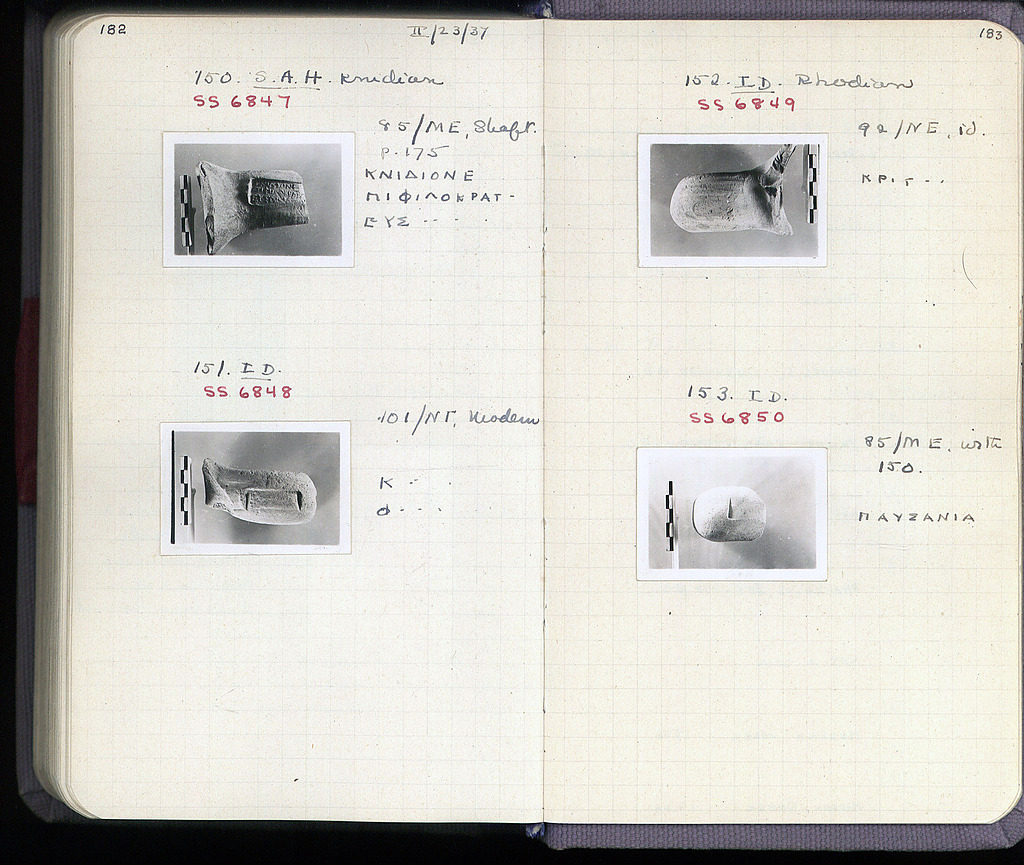 182
II/23/37
150. S.A.H. Knidian
SS 6847
85/ME, Shaft.
p. 175
ΚΝΙΔΙΟΝΕ
ΠΙΦΙΛΟΚΡΑΤ-
ΕΥΣ ····
151. ID.
SS 6848
101/ΝΓ, Modern
Κ ···
Ο ····
183
152. ID. Rhodian
SS 6849
92/NE, id.
ΚΡΙΤ ··
153. ID.
SS 6850
85/ME, with
150.
ΠΑΥΣΑΝΙΑ